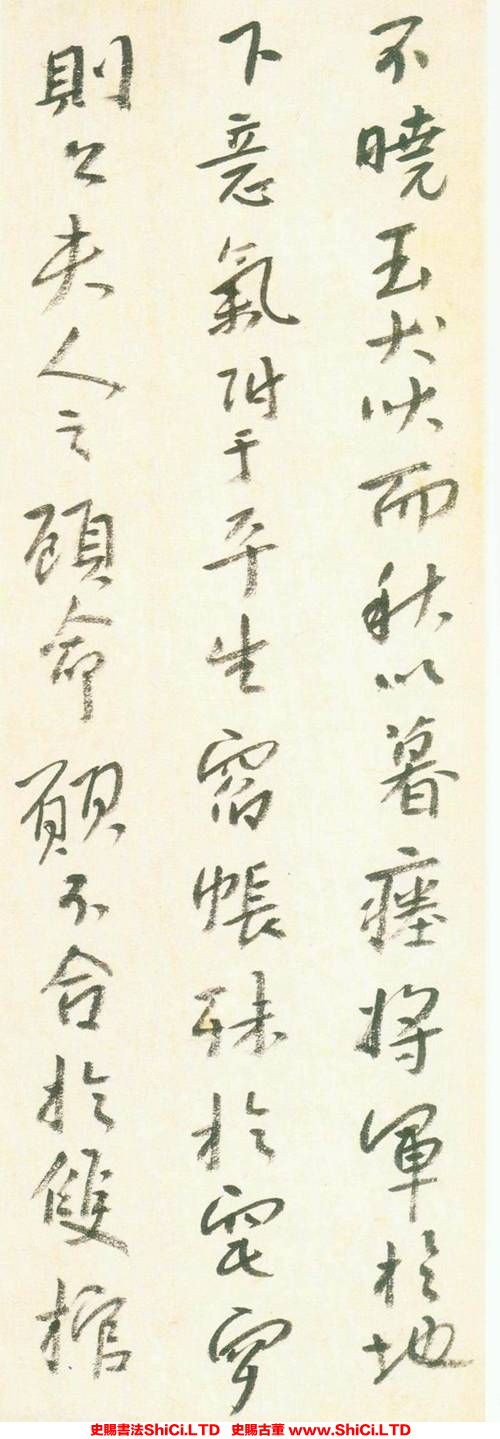 不曉玉犬吠而秋以暮瘞將軍於地
下意氣附于平生宿帳殊於窀穸
則公夫人之顧命願不合於雙棺
史賜書法ShiCi.LTD 史賜古董 www.ShiCi.LTD